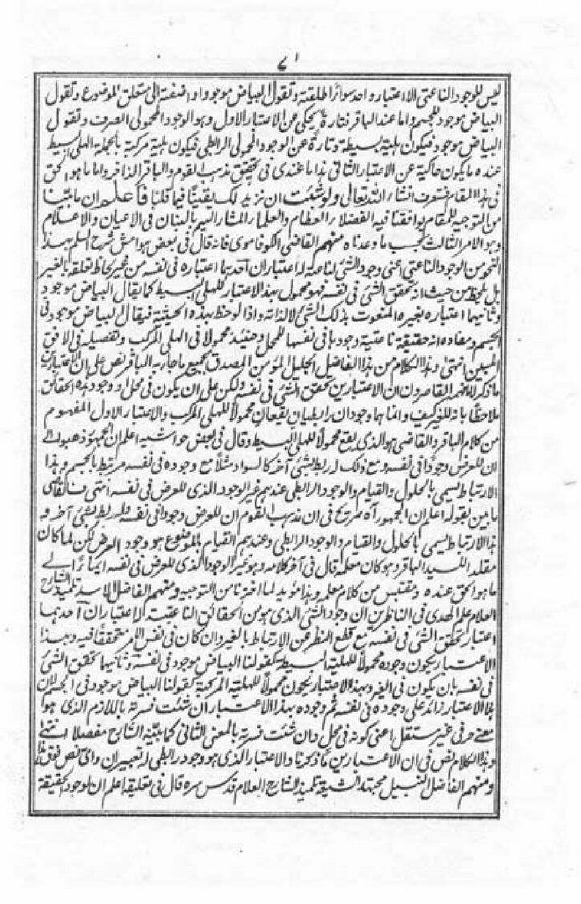 ٧١
ليس للوجود الناعتى الا اعتبار واحد سوائر الحليقة وتقول البياض موجود او اضفته الى متعلق الموضوع وتقول
البياض موجود للجسم واما عند الباقر فتارة يحكى عن الاعتبار الاول وهو الوجود المحمولى الصرف وتقول
البياض موجود فيكون هلية بسيطة وتارة عن الوجود المحمولى الرابطى فيكون هلية مركبة بالجملة الهلى البسيط
عنده ما يكون حاكية عن الاعتبار الثانى هذا ما عندى فى تحقيق مذهب القوم والباقر الذاخر واما ما هو الحق
فى هذا المقام فستعرف انشاء الله تعالى ولو شئت ان نزيد لك يقينا فيما قلنا فاعلم ان ما بينا
من التوجيه للمقام يوافقنا فيه الفضلاء العظام والعلماء المشار اليهم بالبنان فى الاعيان والاعلام
وهو الامر الثالث بحسب ما وعدناه منهم القاضى الكوفاموى فانه قال فى بعض هوامش شرح السلم بهذا
النحو من الوجود الناعتى اعنى وجود الشئ لناعته له اعتباران احدهما اعتباره فى نفسه من غير لحاظ تعلقه بالغير
بل يلحظ من حيث انه تحقق الشئ فى نفسه فهو محمول بهذا الاعتبار للهلى البسيط كما يقال البياض موجود
وثانيهما اعتباره بغيره المنعوت بذلك الشئ لا لذاته واذا لوحظ بهذه الحيثية فيقال البياض موجود فى
الجسم ومفاده انه حقيقة ناعتية وجودها فى نفسها للمحل وحينئذ محمولا فى الهلى المركب وتفصيله فى الافق
المبين انتهى وهذا الكلام من هذا الفاضل الجليل المؤمن المصدق بجميع ما جاء به الباقر نص على ان الاعتبارين
ما ذكرنا لا ما فهم القاصرون ان الاعتبارين تحقق الشئ فى نفسه ولكن على ان يكون فى محل او وجود هذه الحقائق
من كلام الباقر والقاضى هو الذى يقع محمولا للهلى البسيط وقال فى بعض حواشيه اعلم ان الجمهور ذهبوا الى
ان للعرض وجودا فى نفسه ومع ذلك له ربط بشئ آخر كالسواد مثلا مع وجوده فى نفسه مرتبط بالجسم وهذا
الارتباط يسمى بالحلول والقيام والوجود الرابطى عندهم غير الوجود الذى للعرض فى نفسه انتهى
ما بين بقوله اعلم ان الجمهور آه صريح فى ان مذهب القوم ان للعرض وجودا فى نفسه وله ربط بشئ آخر و
هذا الارتباط يسمى بالحلول والقيام والوجود الرابطى وعندهم القيام بالموضوع هو وجود العرض لكن لما كان
مقلدا للسيد الباقر وهو كان معلمه قال فى آخر كلامه وهو غير الوجود الذى للعرض فى نفسه
ما هو الحق عنده ومقتبس من كلام معلمه وهذا مؤيد لما اخترنا من التوجيه ومنهم الفاضل الاسد تلميذ الشارح
العلام علم الهدى فى الناظرين ان وجود الشئ الذى هو من الحقائق الناعتية له اعتباران احدهما
اعتبار تحقق الشئ فى نفسه مع قطع النظر عن الارتباط بالغير وان كان فى نفس الامر متحققا فيه وبهذا
الاعتبار يكون وجوده محمولا للهلية البسيطة كقولنا البياض موجود فى نفسه وثانيهما تحقق الشئ
فى نفسه بان يكون فى الغير وبهذا الاعتبار يكون محمولا للهلية المركبة كقولنا البياض موجود فى الجسم لان
هذا الاعتبار زائد على وجوده فى نفسه ثم وجوده بهذا الاعتبار ان شئت فسرته باللازم الذى هو
معنى حرفى غير مستقل اعنى كونه فى محل وان شئت فسرته بالمعنى الثانى كما بينه الشارح مفصلا انتهى
وهذا الكلام نص فى ان الاعتبارين ما ذكرنا والاعتبار الذى هو وجود رابطى له تعبيران واى نص فوق هذا
ومنهم الفاضل النبيل تلميذ الشارح العلام قدس سره قال فى تعليقه اعلم ان لوجود الحقيقة